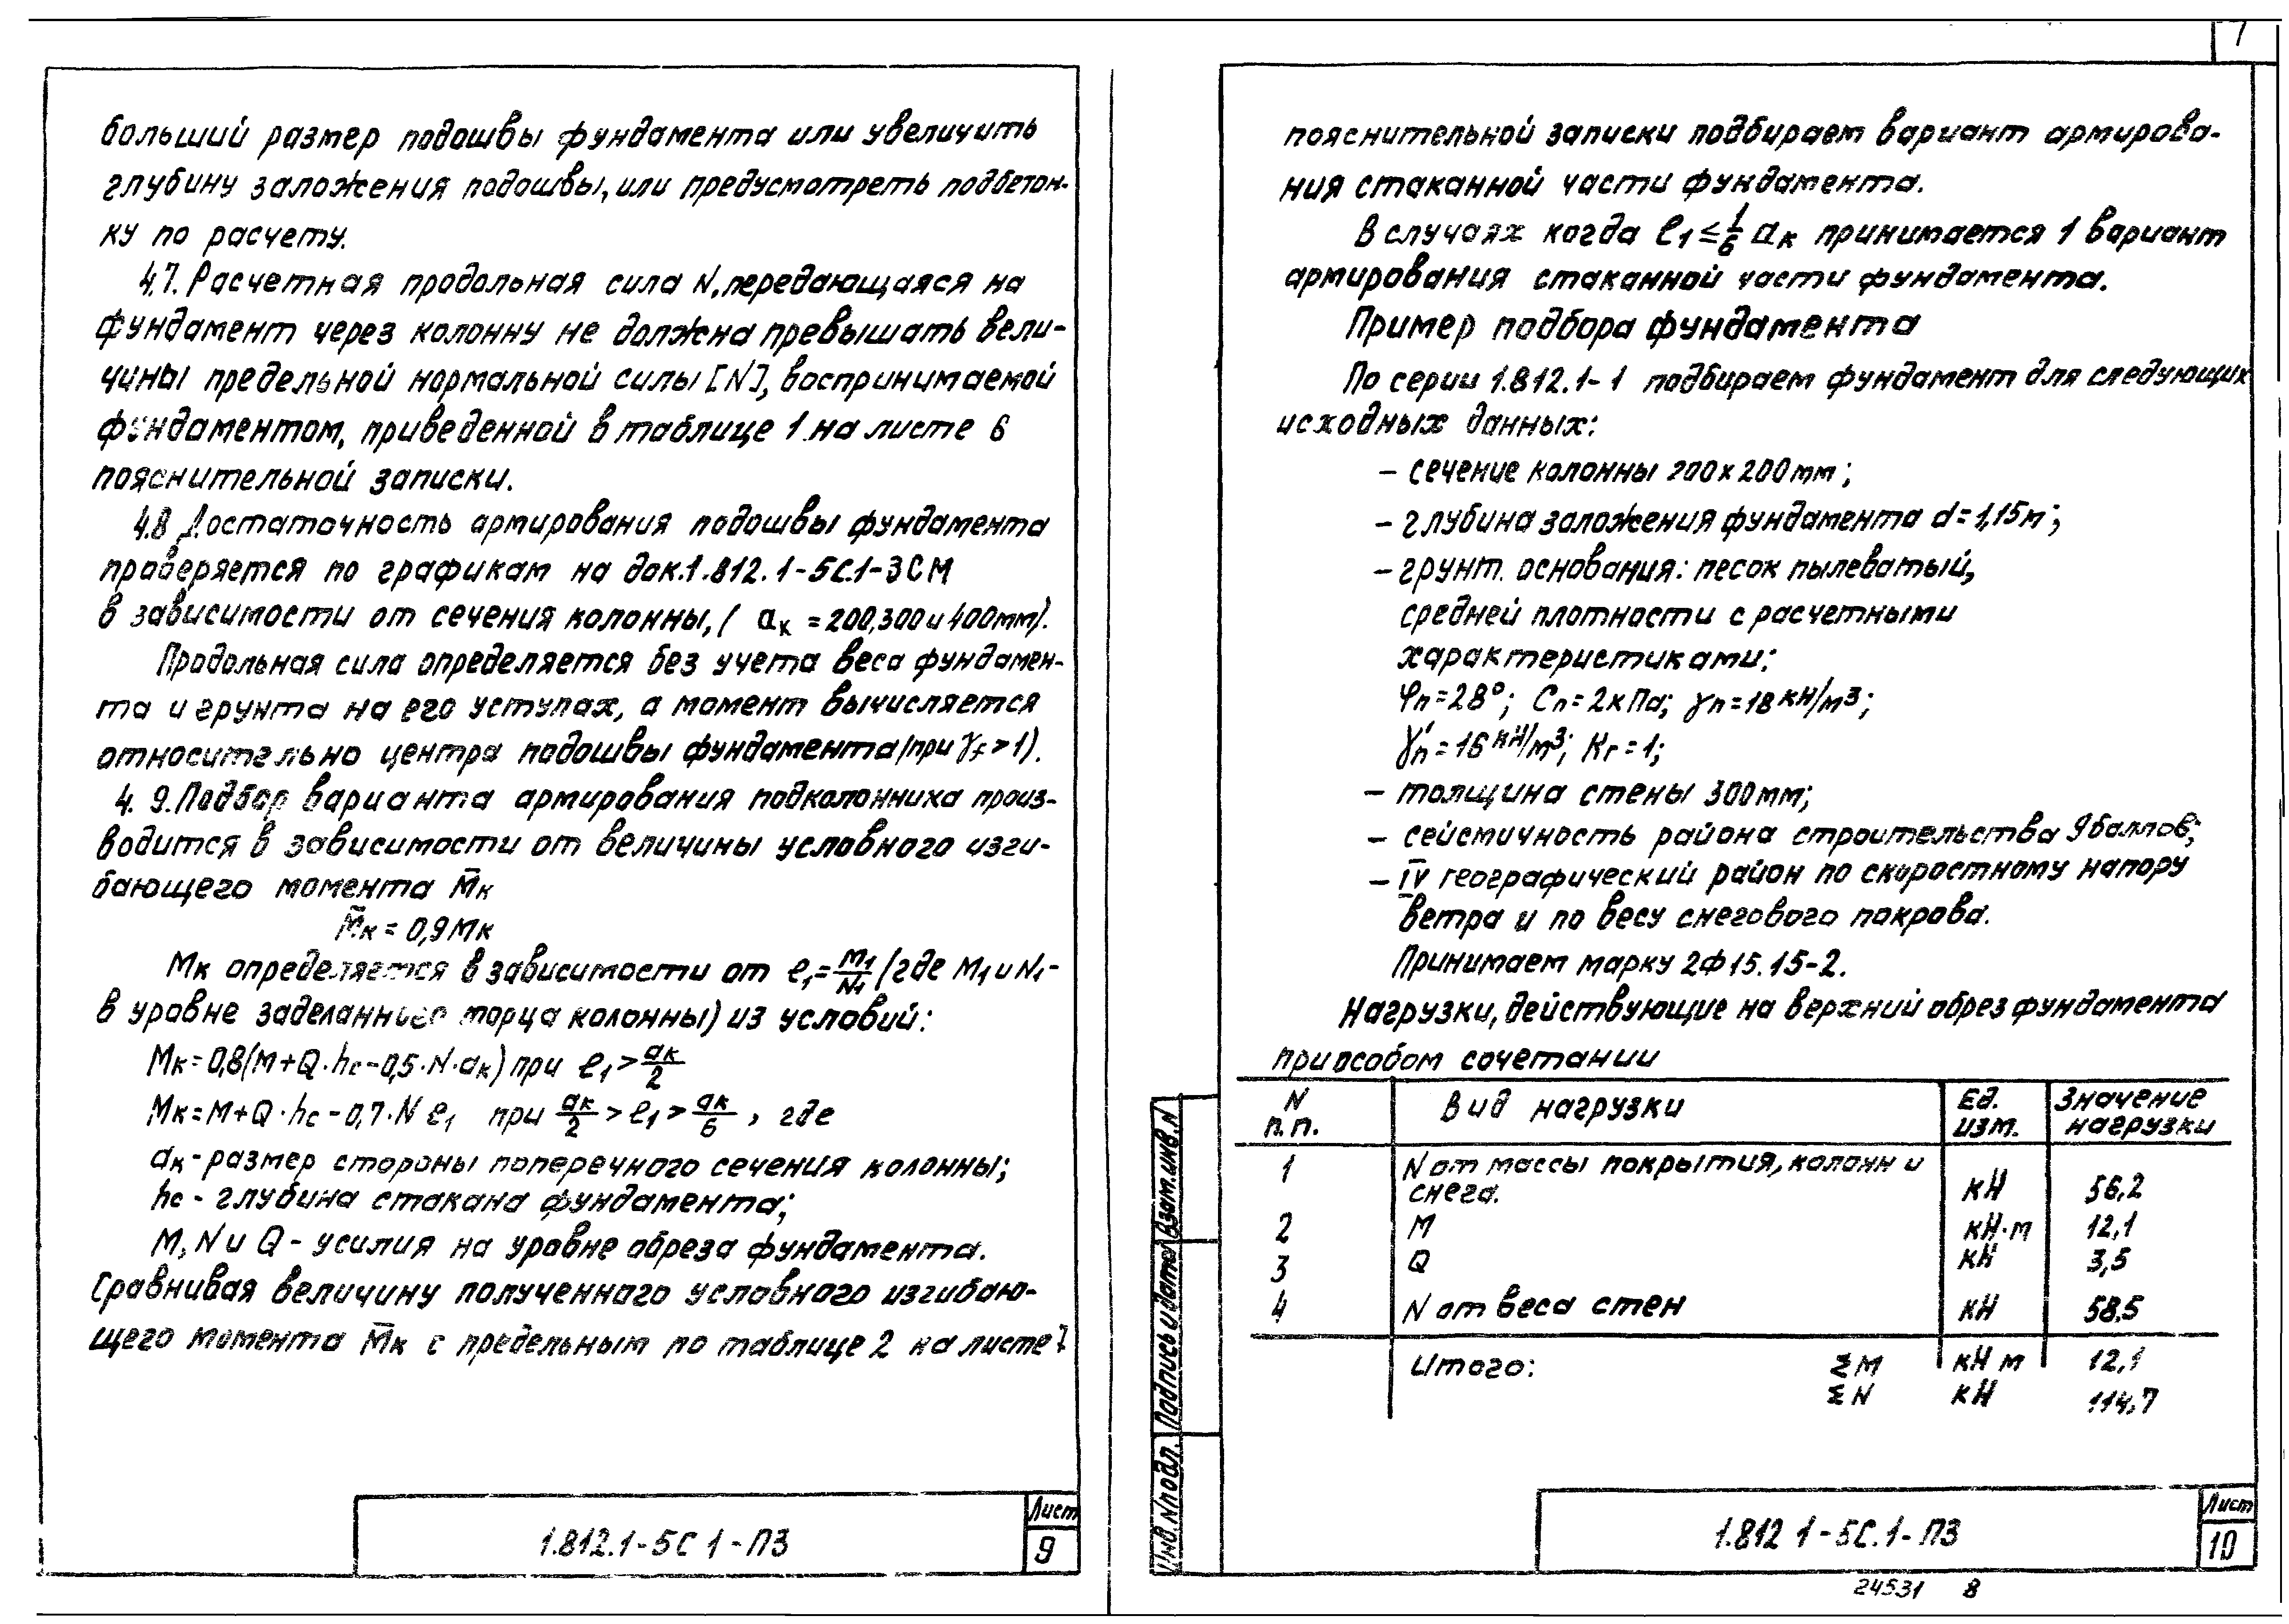 7
больший размер подошвы фундамента или увеличить
глубину заложения подошвы, или предусмотреть подбетон-
ку по расчету.
4.7. Расчетная продольная сила N, передающаяся на
фундамент через колонну не должна превышать вели-
чины предельной нормальной силы [N], воспринимаемой
фундаментом, приведенной в таблице 1 на листе 6
пояснительной записки.
4.8 Достаточность армирования подошвы фундамента
проверяется по графикам на док.1.812.1-5С.1-3СМ
в зависимости от сечения колонны, ( aк = 200,300 и 400мм).
Продольная сила определяется без учета веса фундамен-
та и грунта на его уступах, а момент вычисляется
относительно центра подошвы фундамента (при γf > 1).
4.9. Подбор варианта армирования подколонника произ-
водится в зависимости от величины условного изги-
бающего момента M̄к
M̄к = 0,9Mк
Mк определяется в зависимости от e1 = M1/N1 (где M1 и N1-
в уровне заделанного торца колонны) из условий:
Mк=0,8(M+Q·hc-0,5·N·aк) при e1 > aк/2
Mк=M+Q·hc-0,7·N e1 при aк/2 > e1 > aк/6 , где
aк-размер стороны поперечного сечения колонны;
hc - глубина стакана фундамента;
M, N и Q - усилия на уровне обреза фундамента.
Сравнивая величину полученного условного изгибаю-
щего момента M̄к с предельным по таблице 2 на листе 7
1.812.1-5С 1-ПЗ
Лист
9
пояснительной записки подбираем вариант армирова-
ния стаканной части фундамента.
В случаях когда e1 ≤ 1/6 aк принимается 1 вариант
армирования стаканной части фундамента.
Пример подбора фундамента
По серии 1.812.1-1 подбираем фундамент для следующих
исходных данных:
- сечение колонны 200х200мм;
- глубина заложения фундамента d=1,15м;
- грунт основания: песок пылеватый,
средней плотности с расчетными
характеристиками:
φп=28°; Cп=2кПа; γп=18кН/м³;
γ'п=16кН/м³; Kг=1;
- толщина стены 300мм;
- сейсмичность района строительства 9баллов;
- IV географический район по скоростному напору
ветра и по весу снегового покрова.
Принимаем марку 2Ф15.15-2.
Нагрузки, действующие на верхний обрез фундамента
при особом сочетании
N п.п. Вид нагрузки Ед. изм. Значение нагрузки
1 N от массы покрытия, колонн и
снега. кН 56,2
2 M кН·м 12,1
3 Q кН 3,5
4 N от веса стен кН 58,5
Итого: ΣM кН м 12,1
ΣN кН 114,7
Инв.N подл. Подпись и дата Взам.инв.N
1.812 1-5С.1-ПЗ
Лист
10
24531 8